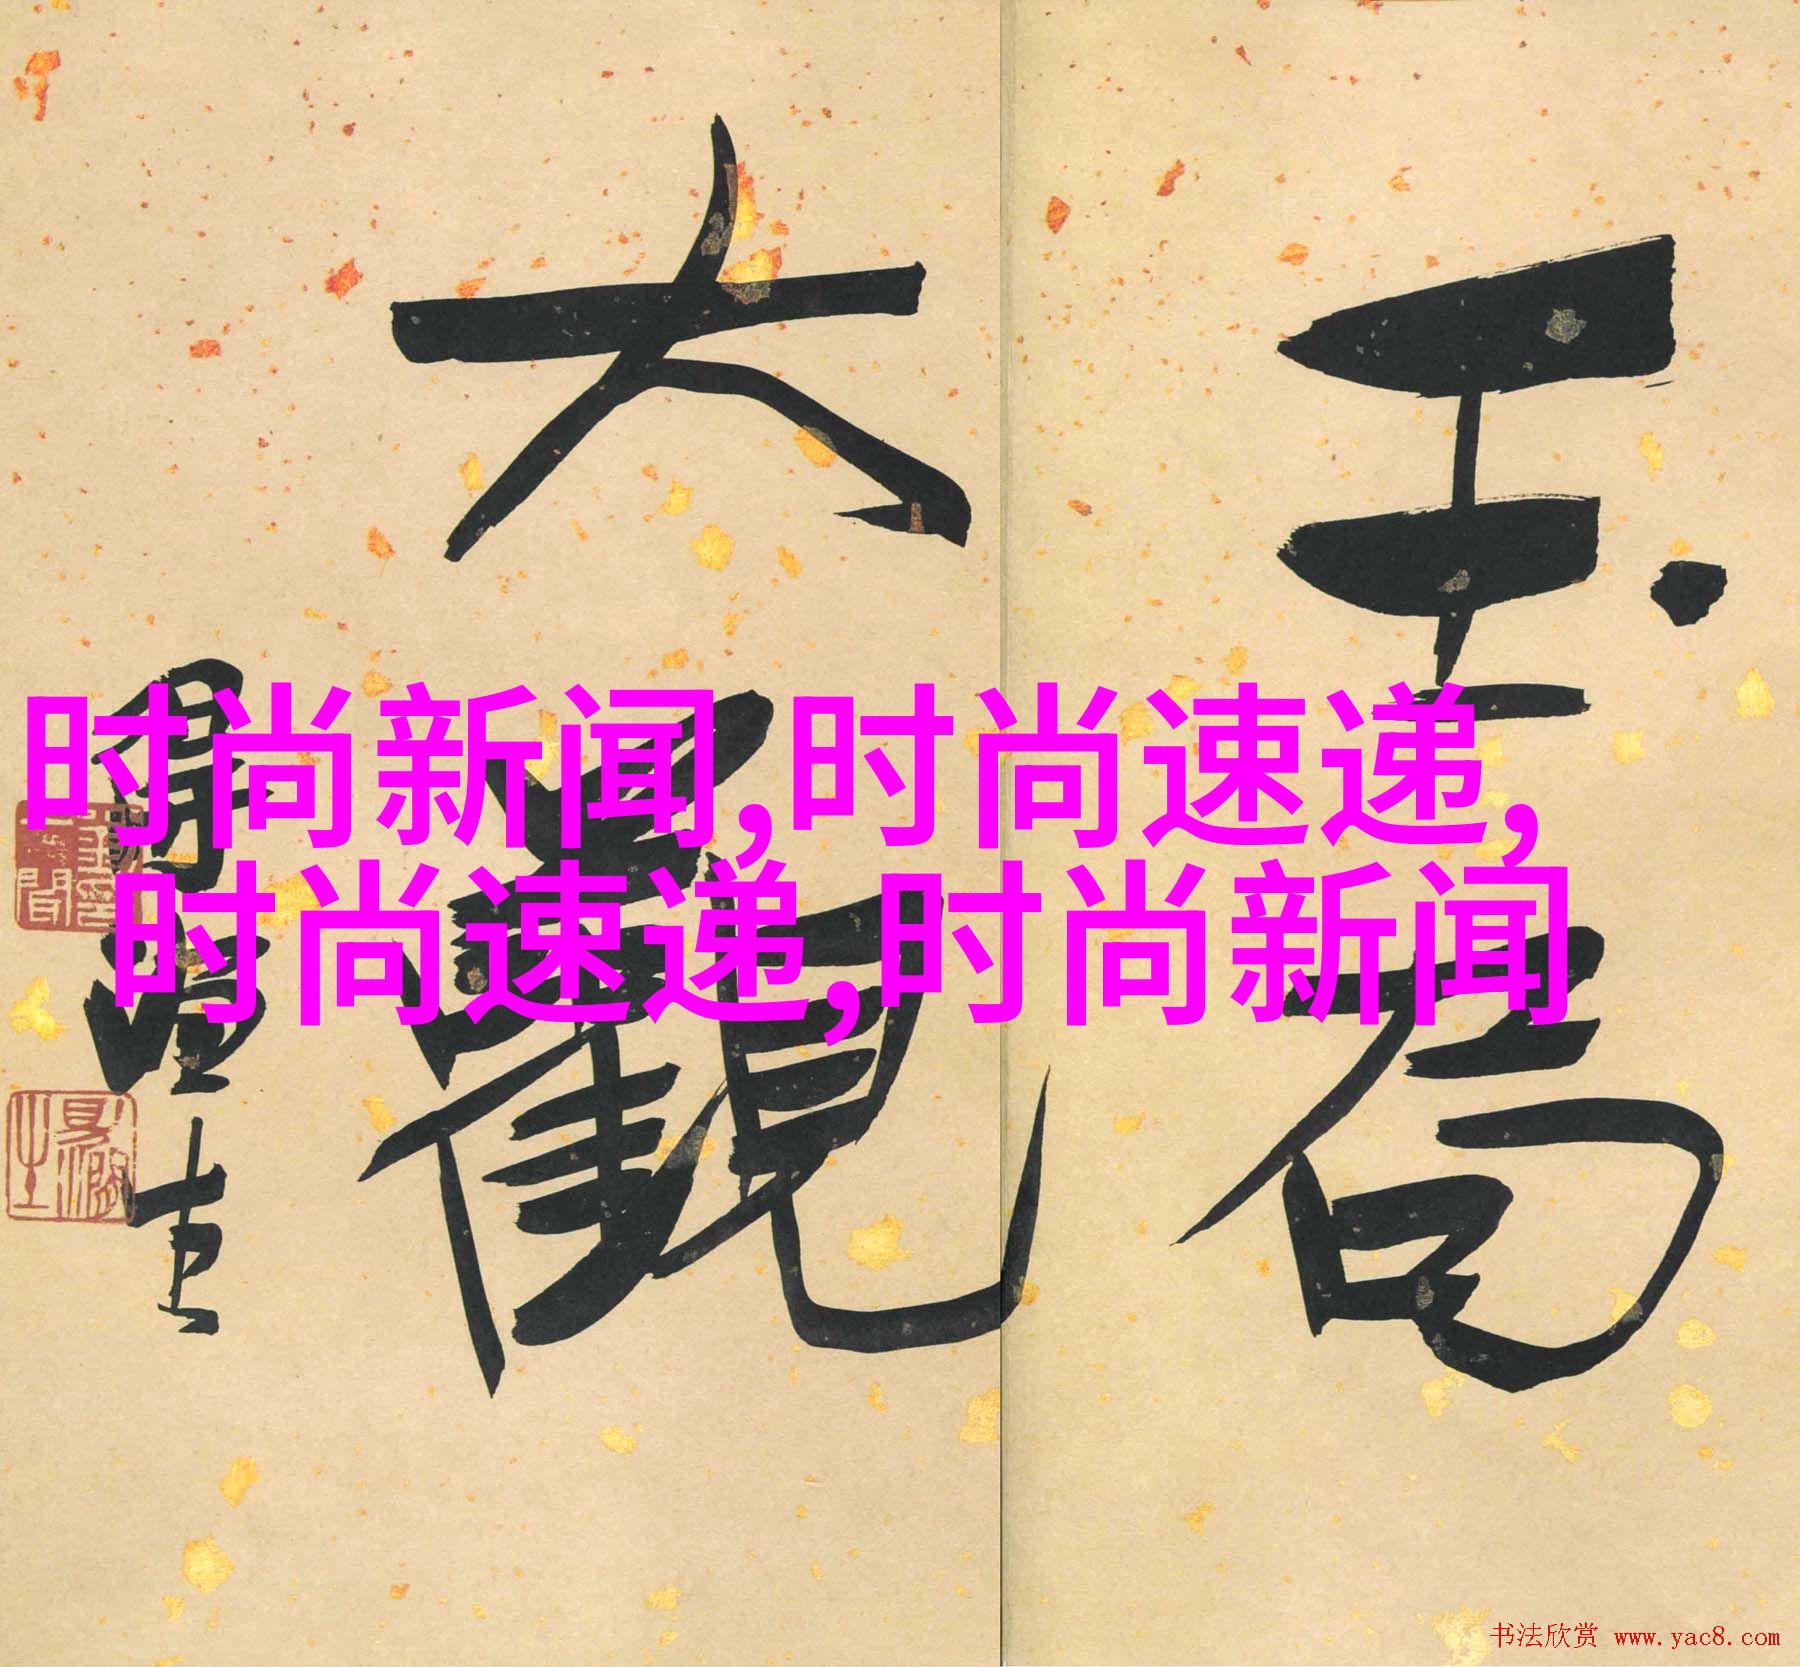 玉局
大觀
时尚新闻,时尚速递,
时尚速递,时尚新闻
书法欣赏 www.yac8.com